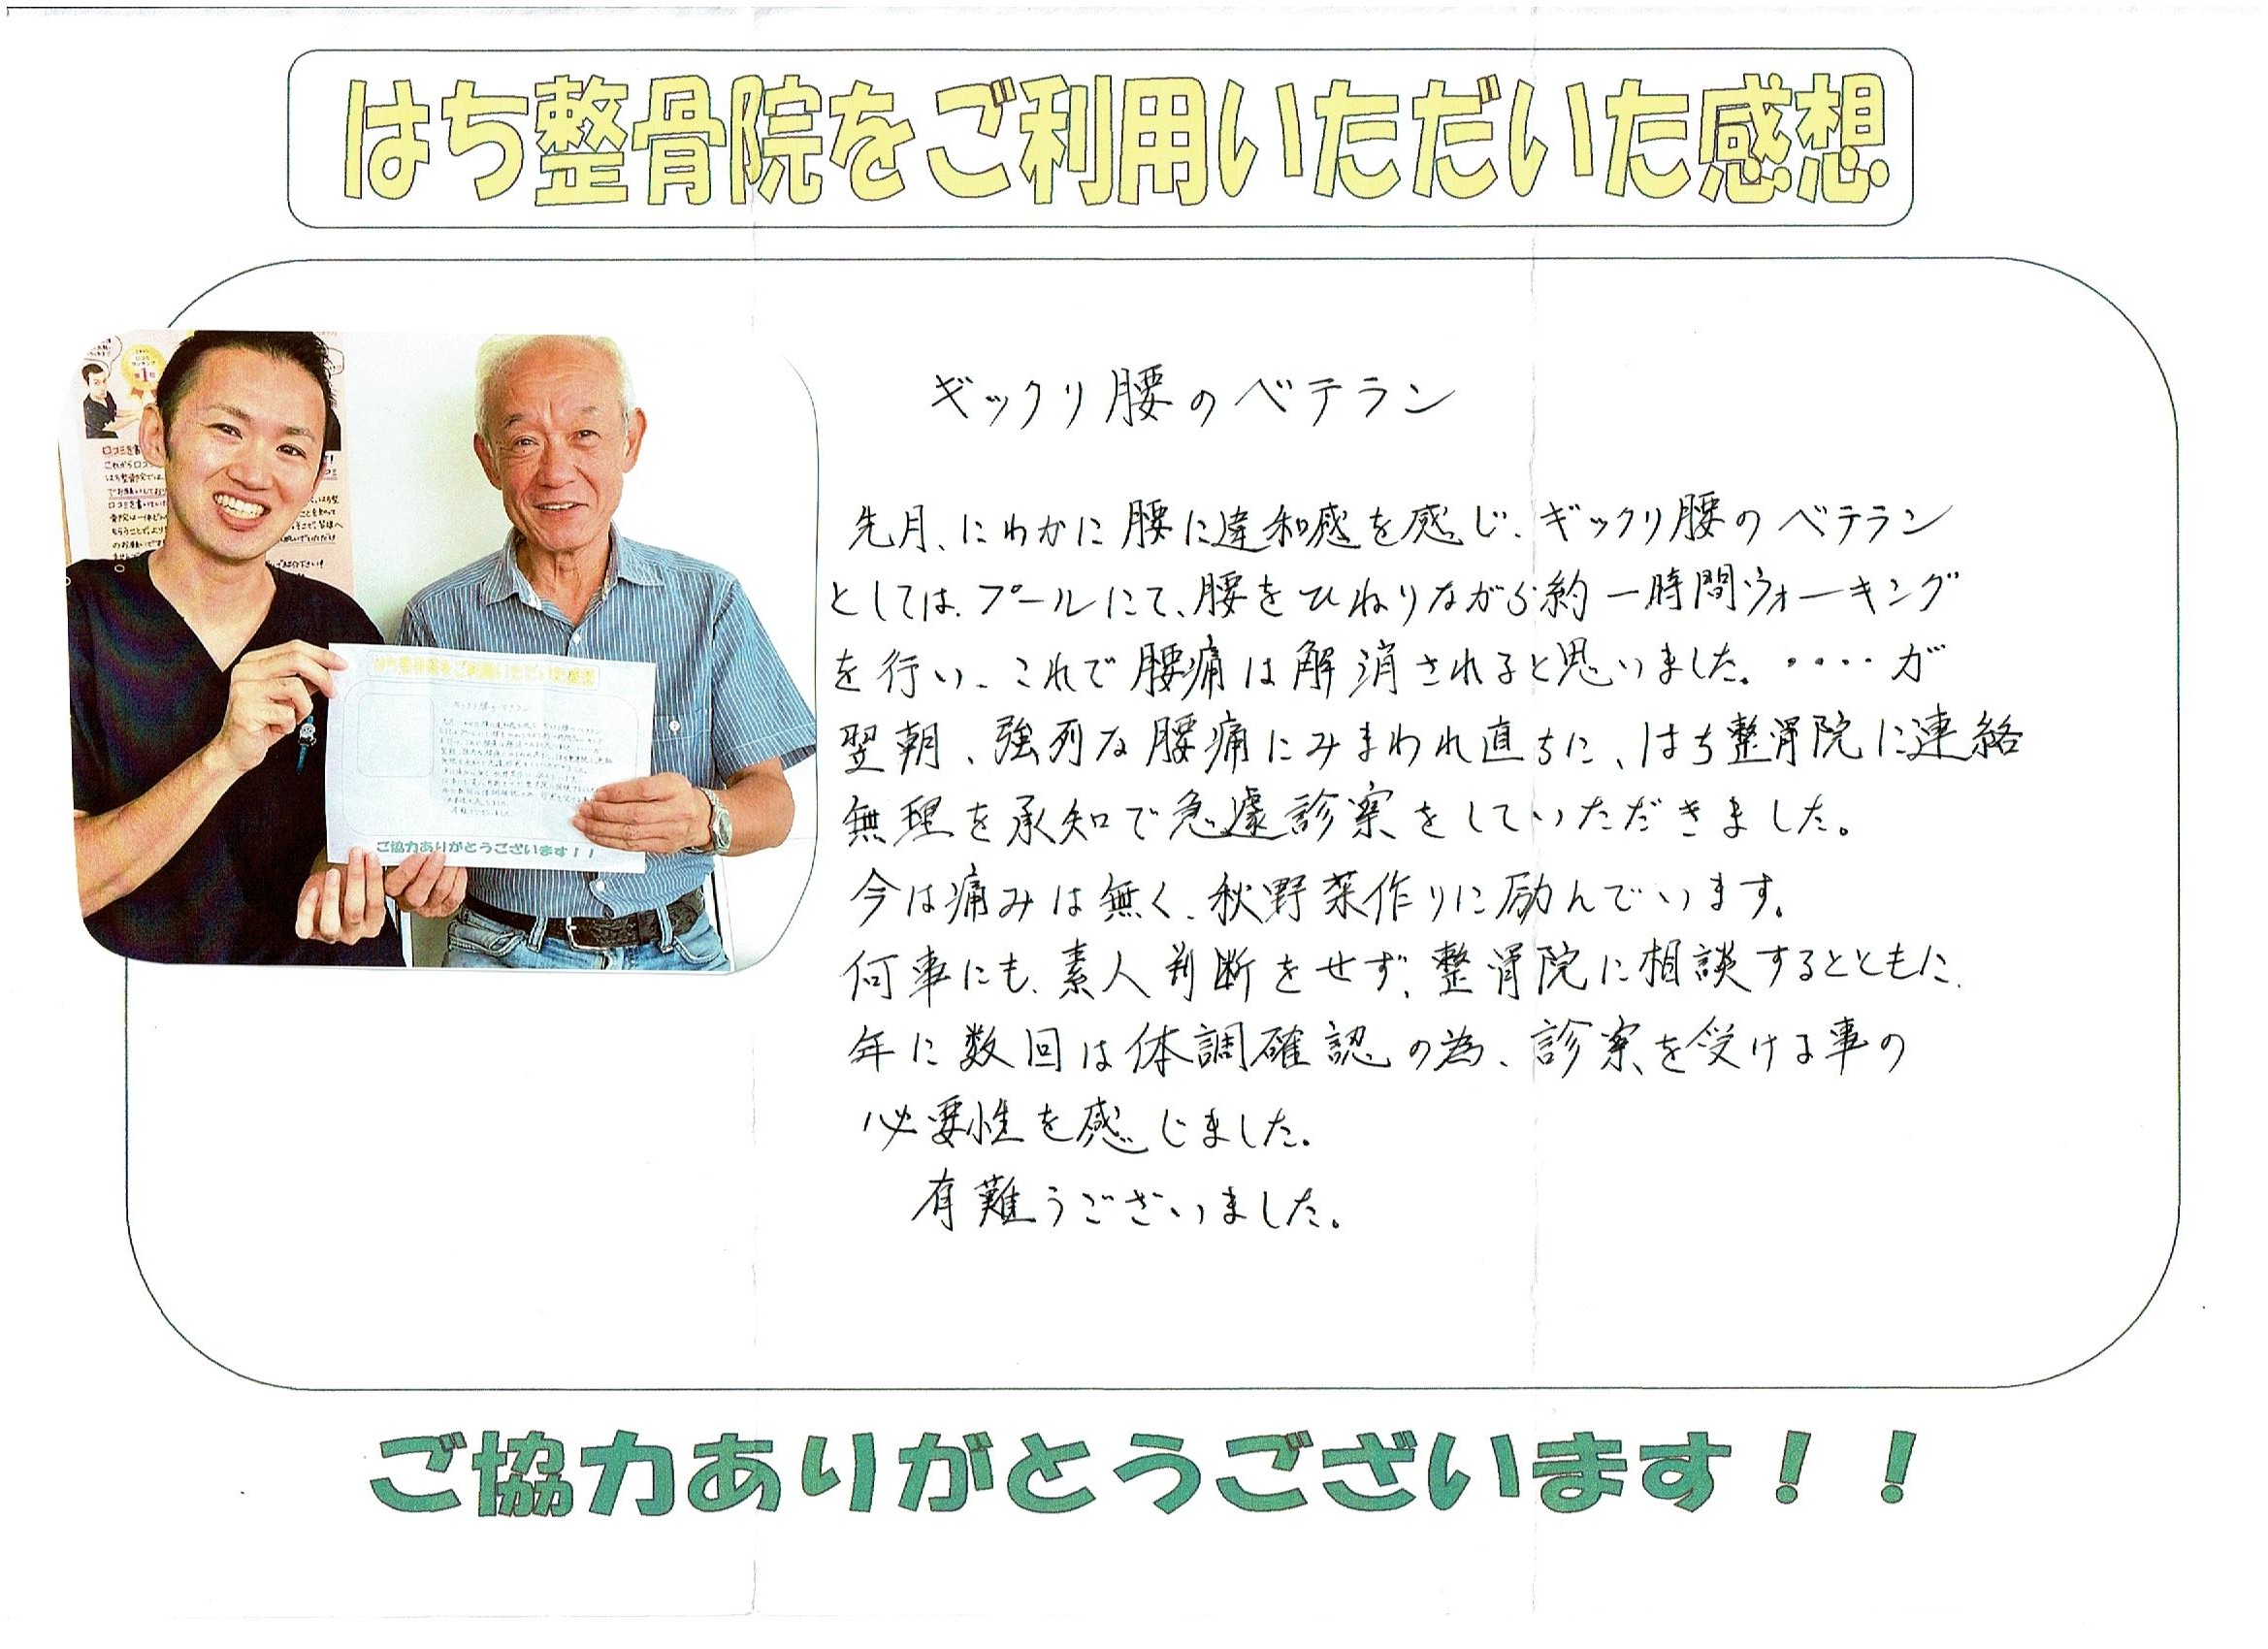 はち整骨院をご利用いただいた感想
ギックリ腰のベテラン
先月、にわかに腰に違和感を感じ、ギックリ腰のベテラン
としては、プールにて、腰をひねりながら約一時間ウォーキング
を行い、これで腰痛は解消されると思いました。・・・・が
翌朝、強烈な腰痛にみまわれ直ちに、はち整骨院に連絡
無理を承知で急遽診察をしていただきました。
今は痛みは無く、秋野菜作りに励んでいます。
何事にも、素人判断をせず、整骨院に相談するとともに、
年に数回は体調確認の為、診察を受ける事の
必要性を感じました。
有難うございました。
はち整骨院をご利用いただいた感想
ギックリ腰のベテラン
ご協力ありがとうございます！！
ご協力ありがとうございます！！